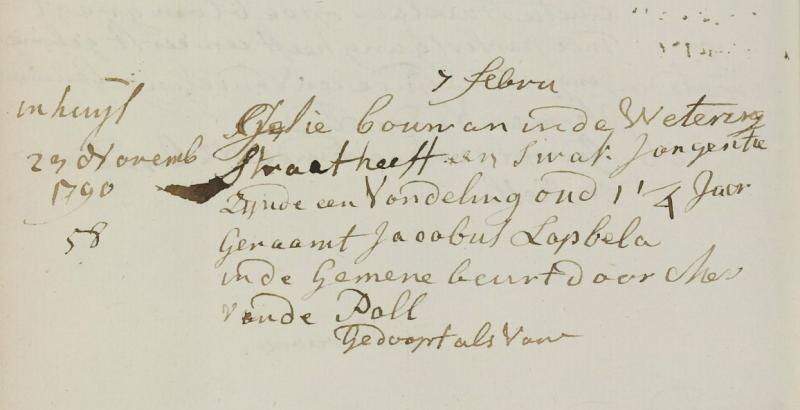 7 Febru
in huijs
23 Novemb
1790
58
Gelie bouman inde Wetering
Straat heeft een Swak Jongentie
Zijnde een Vondeling oud 1 1/4 Jaer
Genaamt Jacobus Lopbela
inde Gemene beurt door Mev
vande Poll
Gedoopt als Vaw